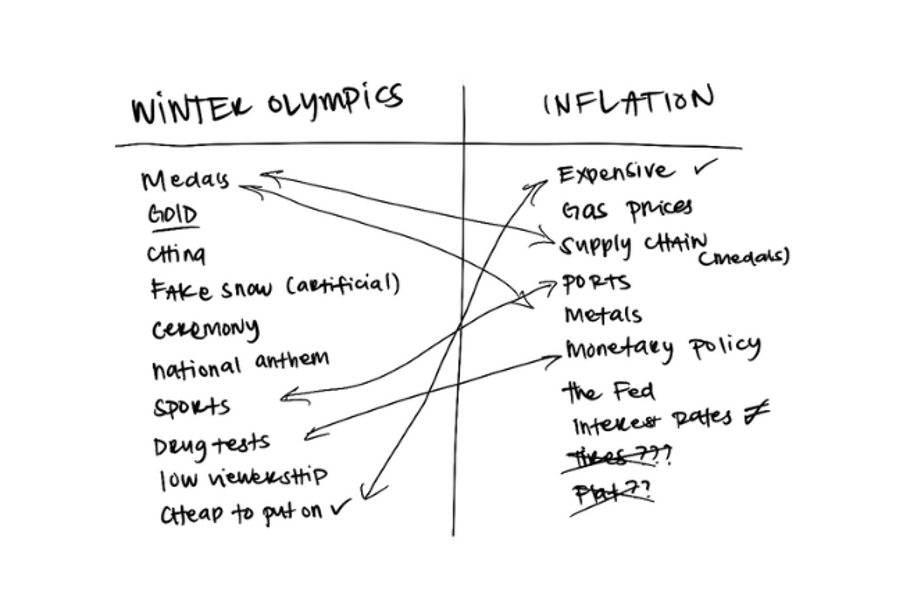 WINTER OLYMPICS
Medals
GOLD
CHina
FAKe snow (artificial)
ceremony
national anthem
SPORTS
Drug tests
low viewership
CHeap to put on ✓
INFLATION
Expensive ✓
Gas prices
Supply CHAIN
(medals)
PORTS
Metals
Monetary policy
the Fed
Interest Rates ≠